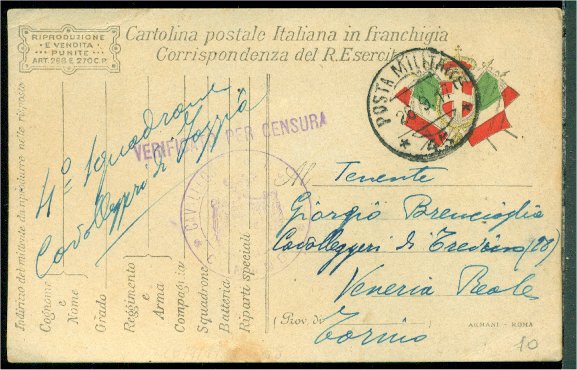 RIPRODUZIONE
E VENDITA
PUNITE
ART. 266 E 270 C.P.
Cartolina postale Italiana in franchigia
Corrispondenza del R. Esercito
POSTA MILITARE
45
VERIFICATO PER CENSURA
4° Squadrone
Cavalleggeri di
Indirizzo del mittente da riprodurre nelle risposte
Cognome
e
Nome
Grado
Reggimento
e
Arma
Compagnia
Squadrone
Batteria
Riparti speciali
Al Tenente
Giorgio
Cavalleggeri di Treviso (28)
Veneria Reale
(Prov. di
Torino
ARMANI - ROMA
10